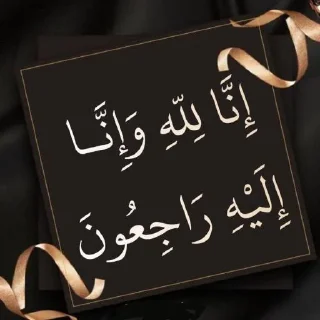 إِنَّا لِلّهِ وَإِنَّــا
إِلَيْهِ رَاجِعُونَ